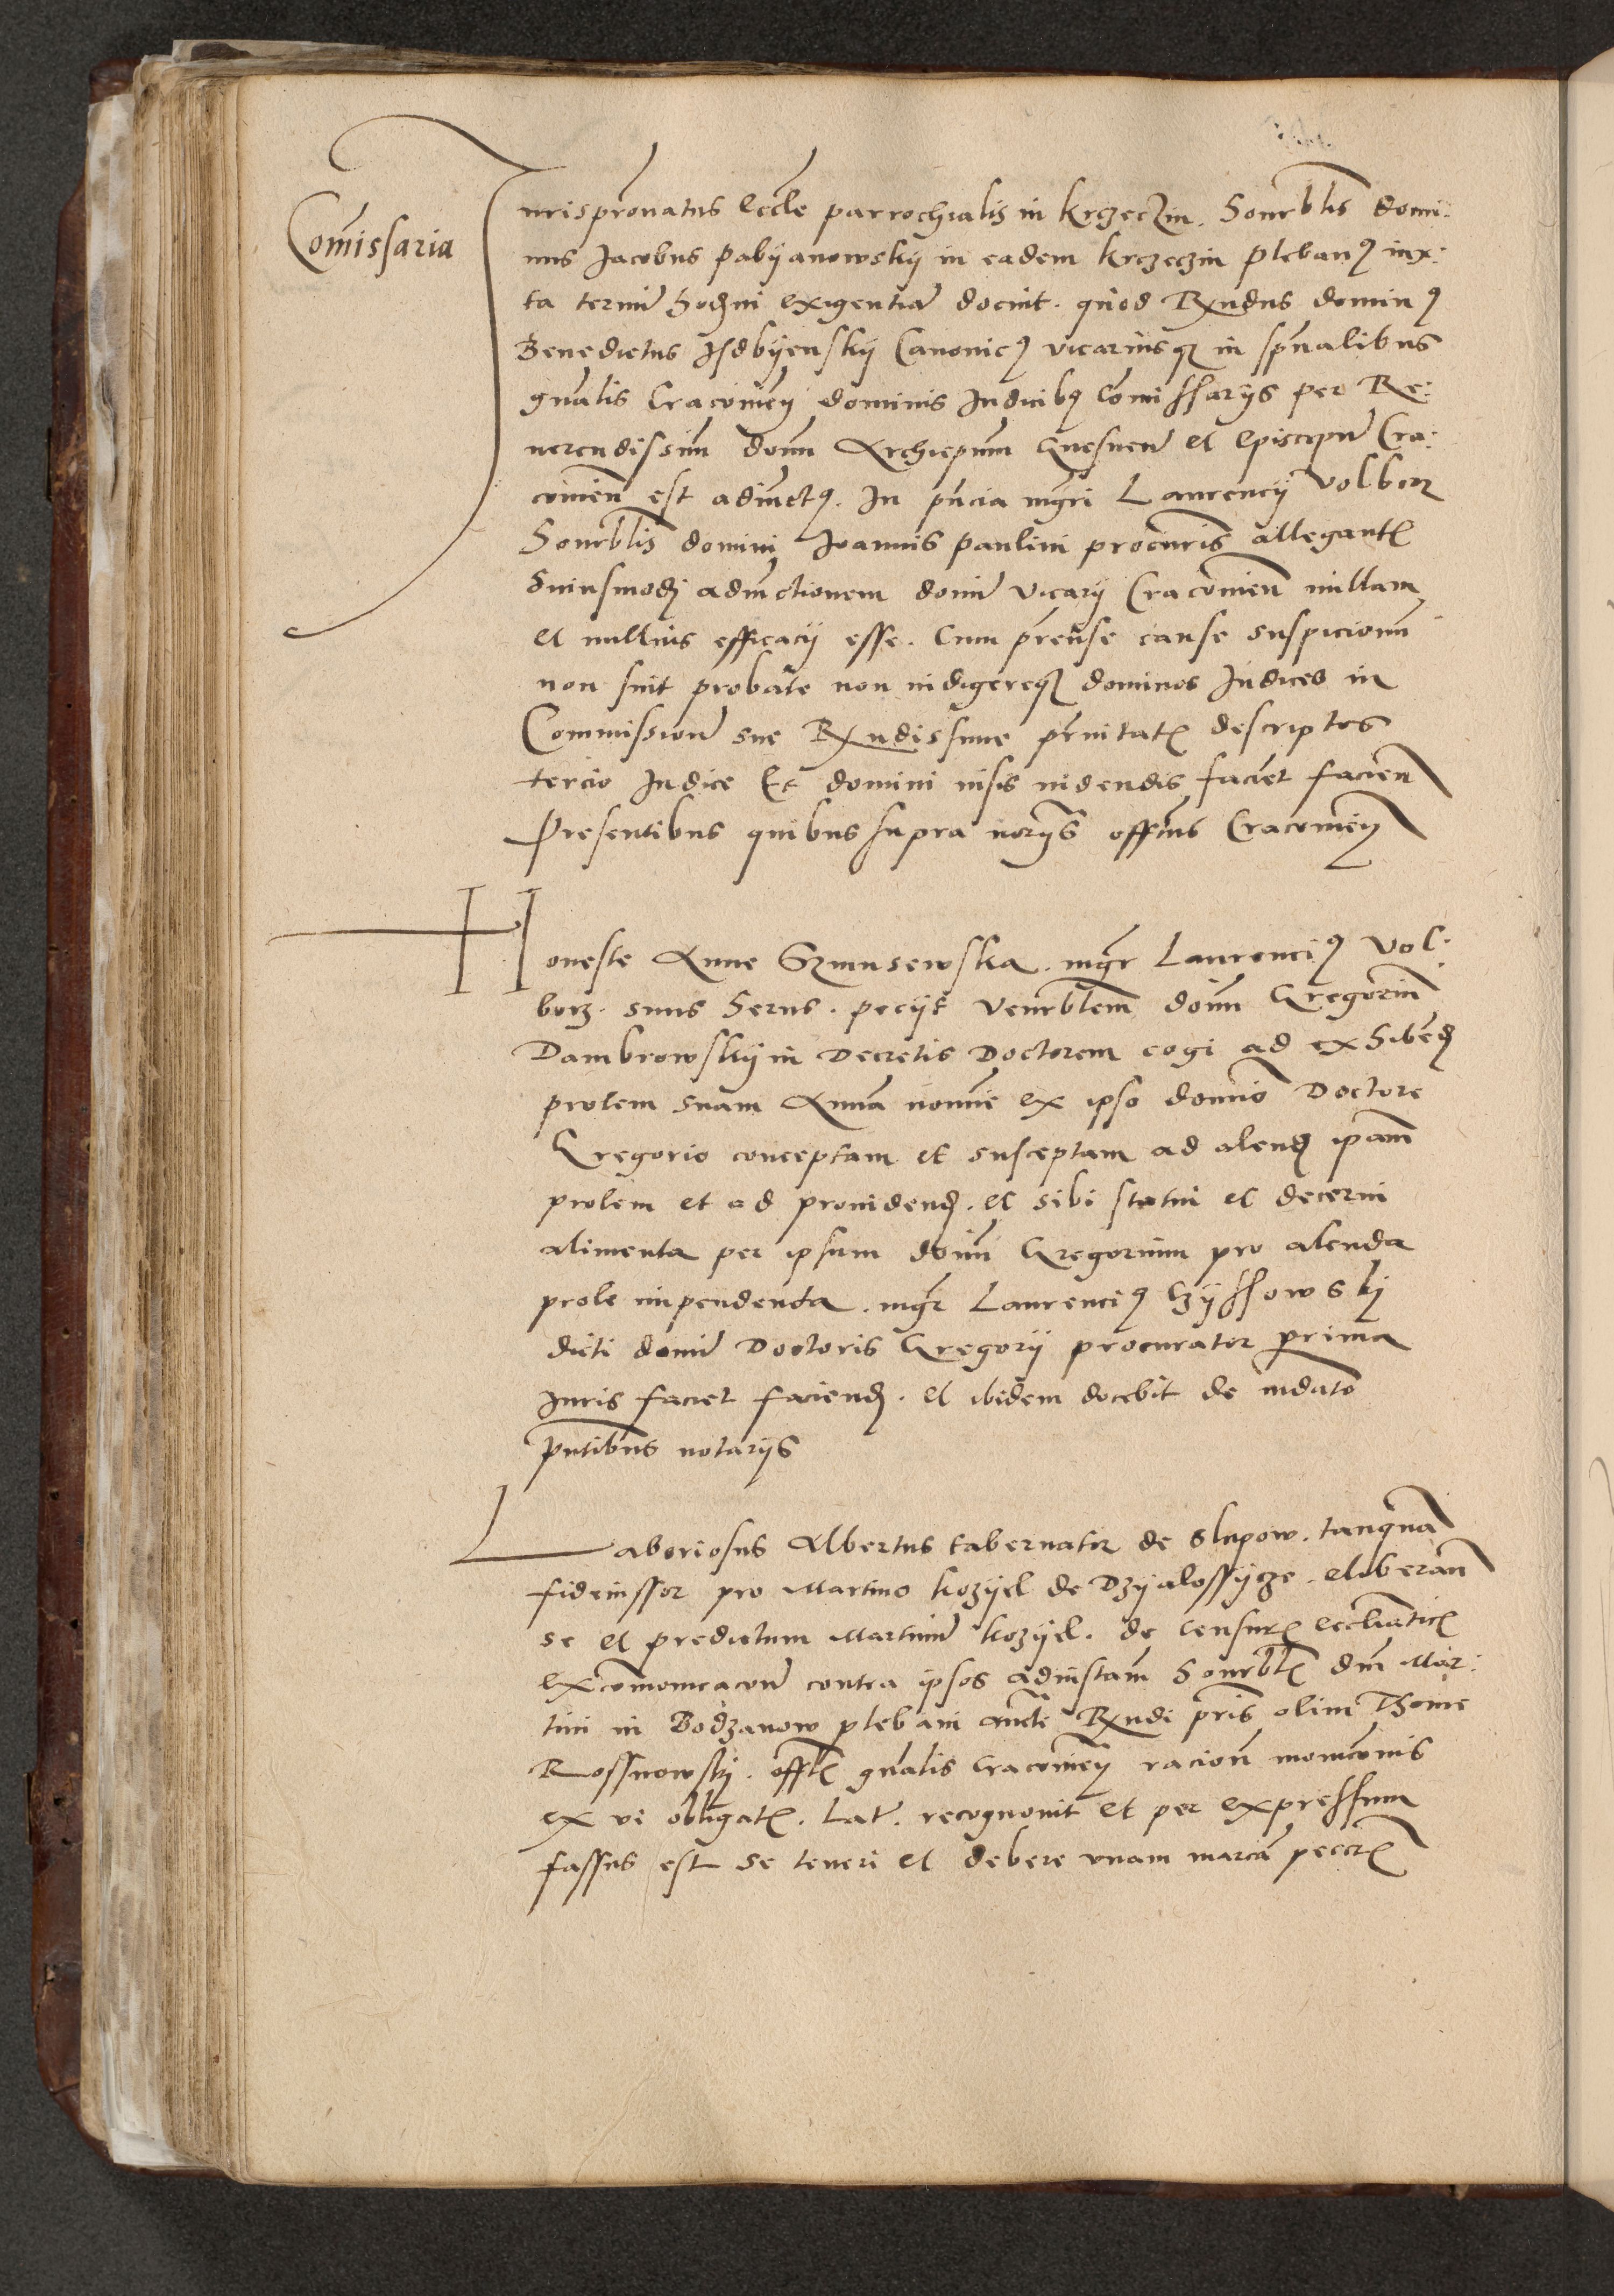 Com̄issaria
Iurispr̄onatus eccl̄e parrochialis in krczeczin. honrb̄lis domi:
nus Jacobus pabyanowsky in eadem krczeczin plebanꝰ iux:
ta termī hodiernī exigentiā docuit. quod Rx̄ndus dominꝰ
Benedictus Isdbyensky Canonicꝰ vicariusqꝫ in sp̄nalibus
gn̄alis Cracoviēn dominis Iudicibꝰ Com̄issarys per Re:
uerendissim̄ dom̄ Archiep̄um gnesneñ et episcopū Cra:
couień est adiūctꝰ. In p̄ncia mgr̄i Laurency Volborz
honrb̄lis domini Joannis paulini procur̄is allegantꝭ
huiusmodi adiūctionem domī vicary Cracouień nullam
et nullius efficacy esse. Cum pr̄ense cause suspicionū
non sint probate non indigereqꝫ dominos Iudices in
Commissionē sue Rx̄ndissime pr̄nitatꝭ descriptos
tercio Iudice Et domini uisis uidendis faciet facień
presentibus quibus supra nor̄ys offic̄us Cracouień
Honeste Anne Szmusewska. mgr̄ Laurenciꝰ Vol:
borz. suus herus. peciit Venrb̄lem dom̄ Gregoriū
Dambrowsky in Decretis Doctorem cogi ad exhibēd
prolem suam Annā nomīe ex ipso domīo Doctore
Gregorio conceptam et susceptam ad alend ip̄am
prolem et ad prouidend. et sibi statui et decerni
alimenta per ipsum dom̄ Gregorium pro alenda
prole impendenda. mgr̄ Laurenciꝰ Czyssowsky
dicti domī Doctoris Gregory procurator prima
Iuris faciet faciend. et ibidem docebit de mdato
pn̄tibus notarys
Laboriosus Albertus tabernator de Slupow. tanquā
fideiussor pro Martino kozyel de Dzyalossycze. eliberañ
se et predictum Martinū kozyel. de censurꝭ eccl̄iasticꝭ
excom̄onicacionū contra ipsos ad instam̄ honrb̄lꝭ dn̄i Mar:
tini in Bodzanow plebani auctē Rx̄ndi pr̄is olim Thome
Rossnowsky. offl̄ꝭ gn̄alis Cracouień racion̄ monic̄onis
ex vi obligatꝭ. Lat̄. recognouit et per expressum
fassus est se teneri et debere vnam marcā peccr̄ꝭ